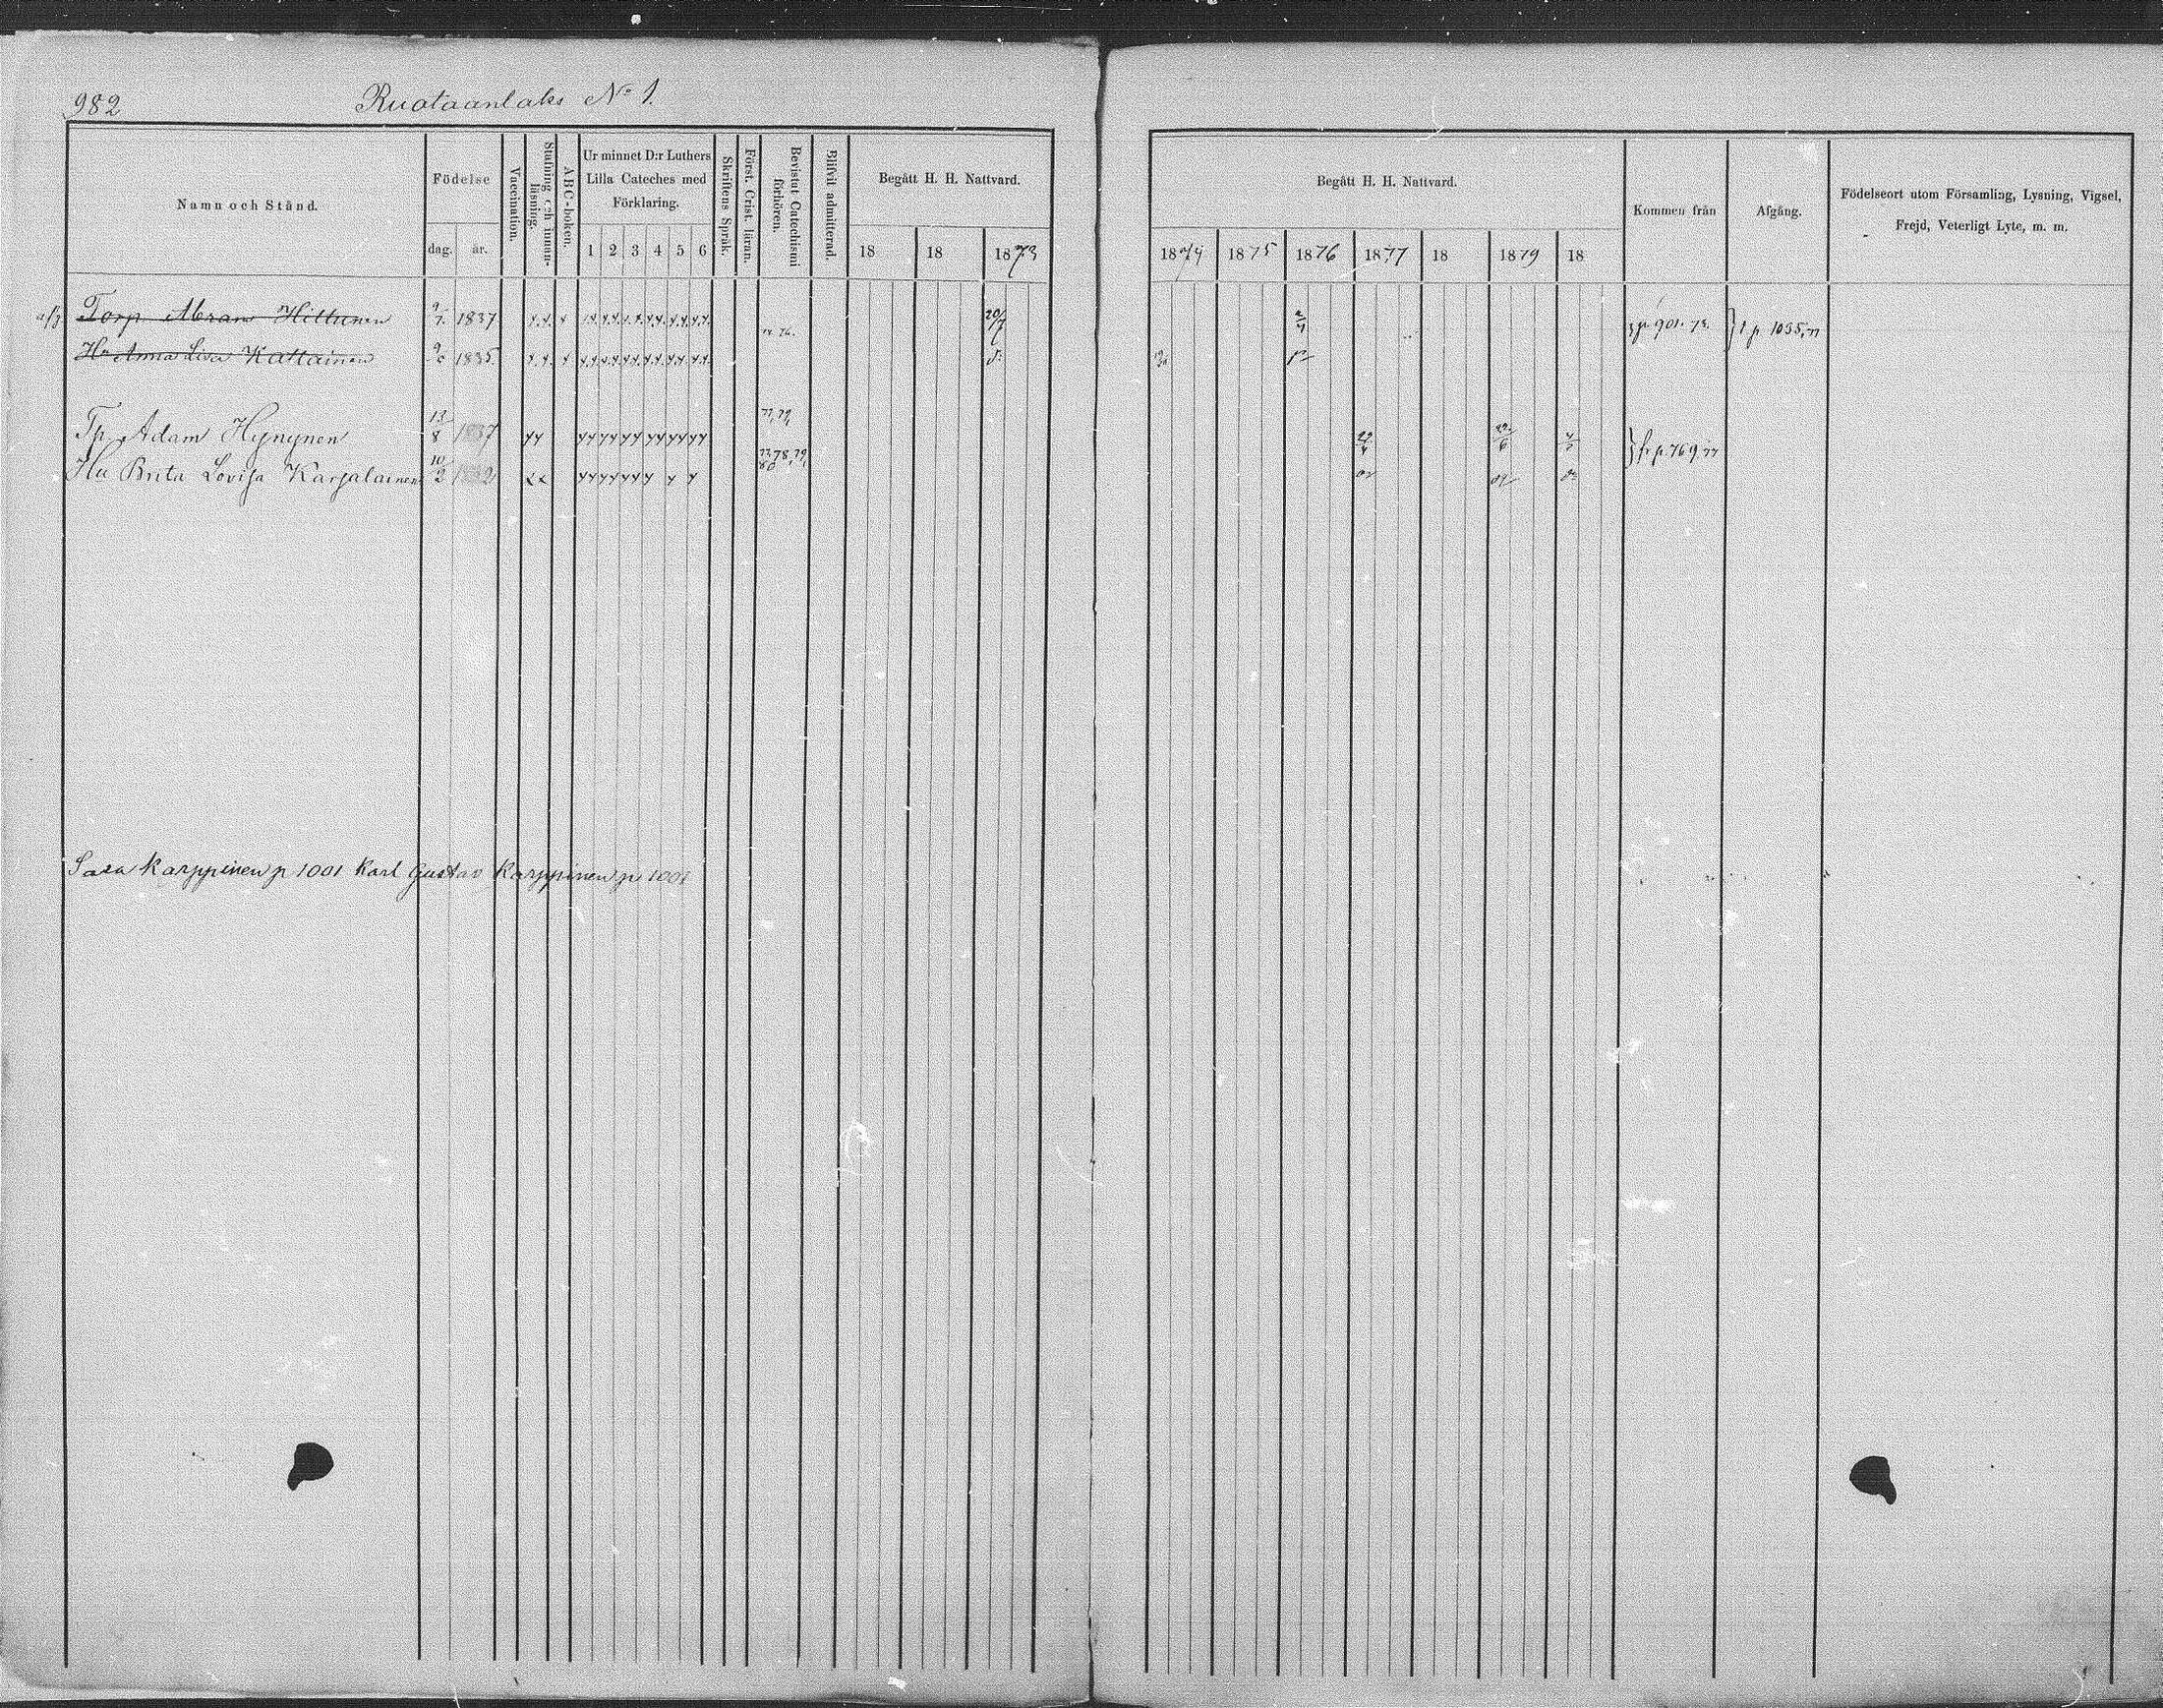 982 Ruotaanlaks No 1.
Namn och Stånd.
Födelse
dag. år.
Vaccination.
Stafning och innanläsning.
ABC-boken.
Ur minnet D:r Luthers
Lilla Cateches med
Förklaring.
1 2 3 4 5 6
Skriftens Språk.
Först. Crist. läran.
Bevistat Catechismi förhören.
Blifvit admitterad.
Begått H. H. Nattvard.
18 18 1873
Begått H. H. Nattvard.
1874 1875 1876 1877 18 1879 18
Kommen från
Afgång.
Födelseort utom Församling, Lysning, Vigsel,
Frejd, Veterligt Lyte, m. m.
Torp Abram Hiltunen 9/7 1837 20/7 p 901. 73. t p 1035,77
Hu Anna Lisa Kattainen 1835
Tp Adam Hynynen 13/8 1837 77, 79, 22/6 fr p. 769, 77
Hu Brita Lovisa Karjalainen 10/2 1832 77, 78, 79, 80
Sara Karppinen p 1001 Karl Gustav Karppinen p 1001